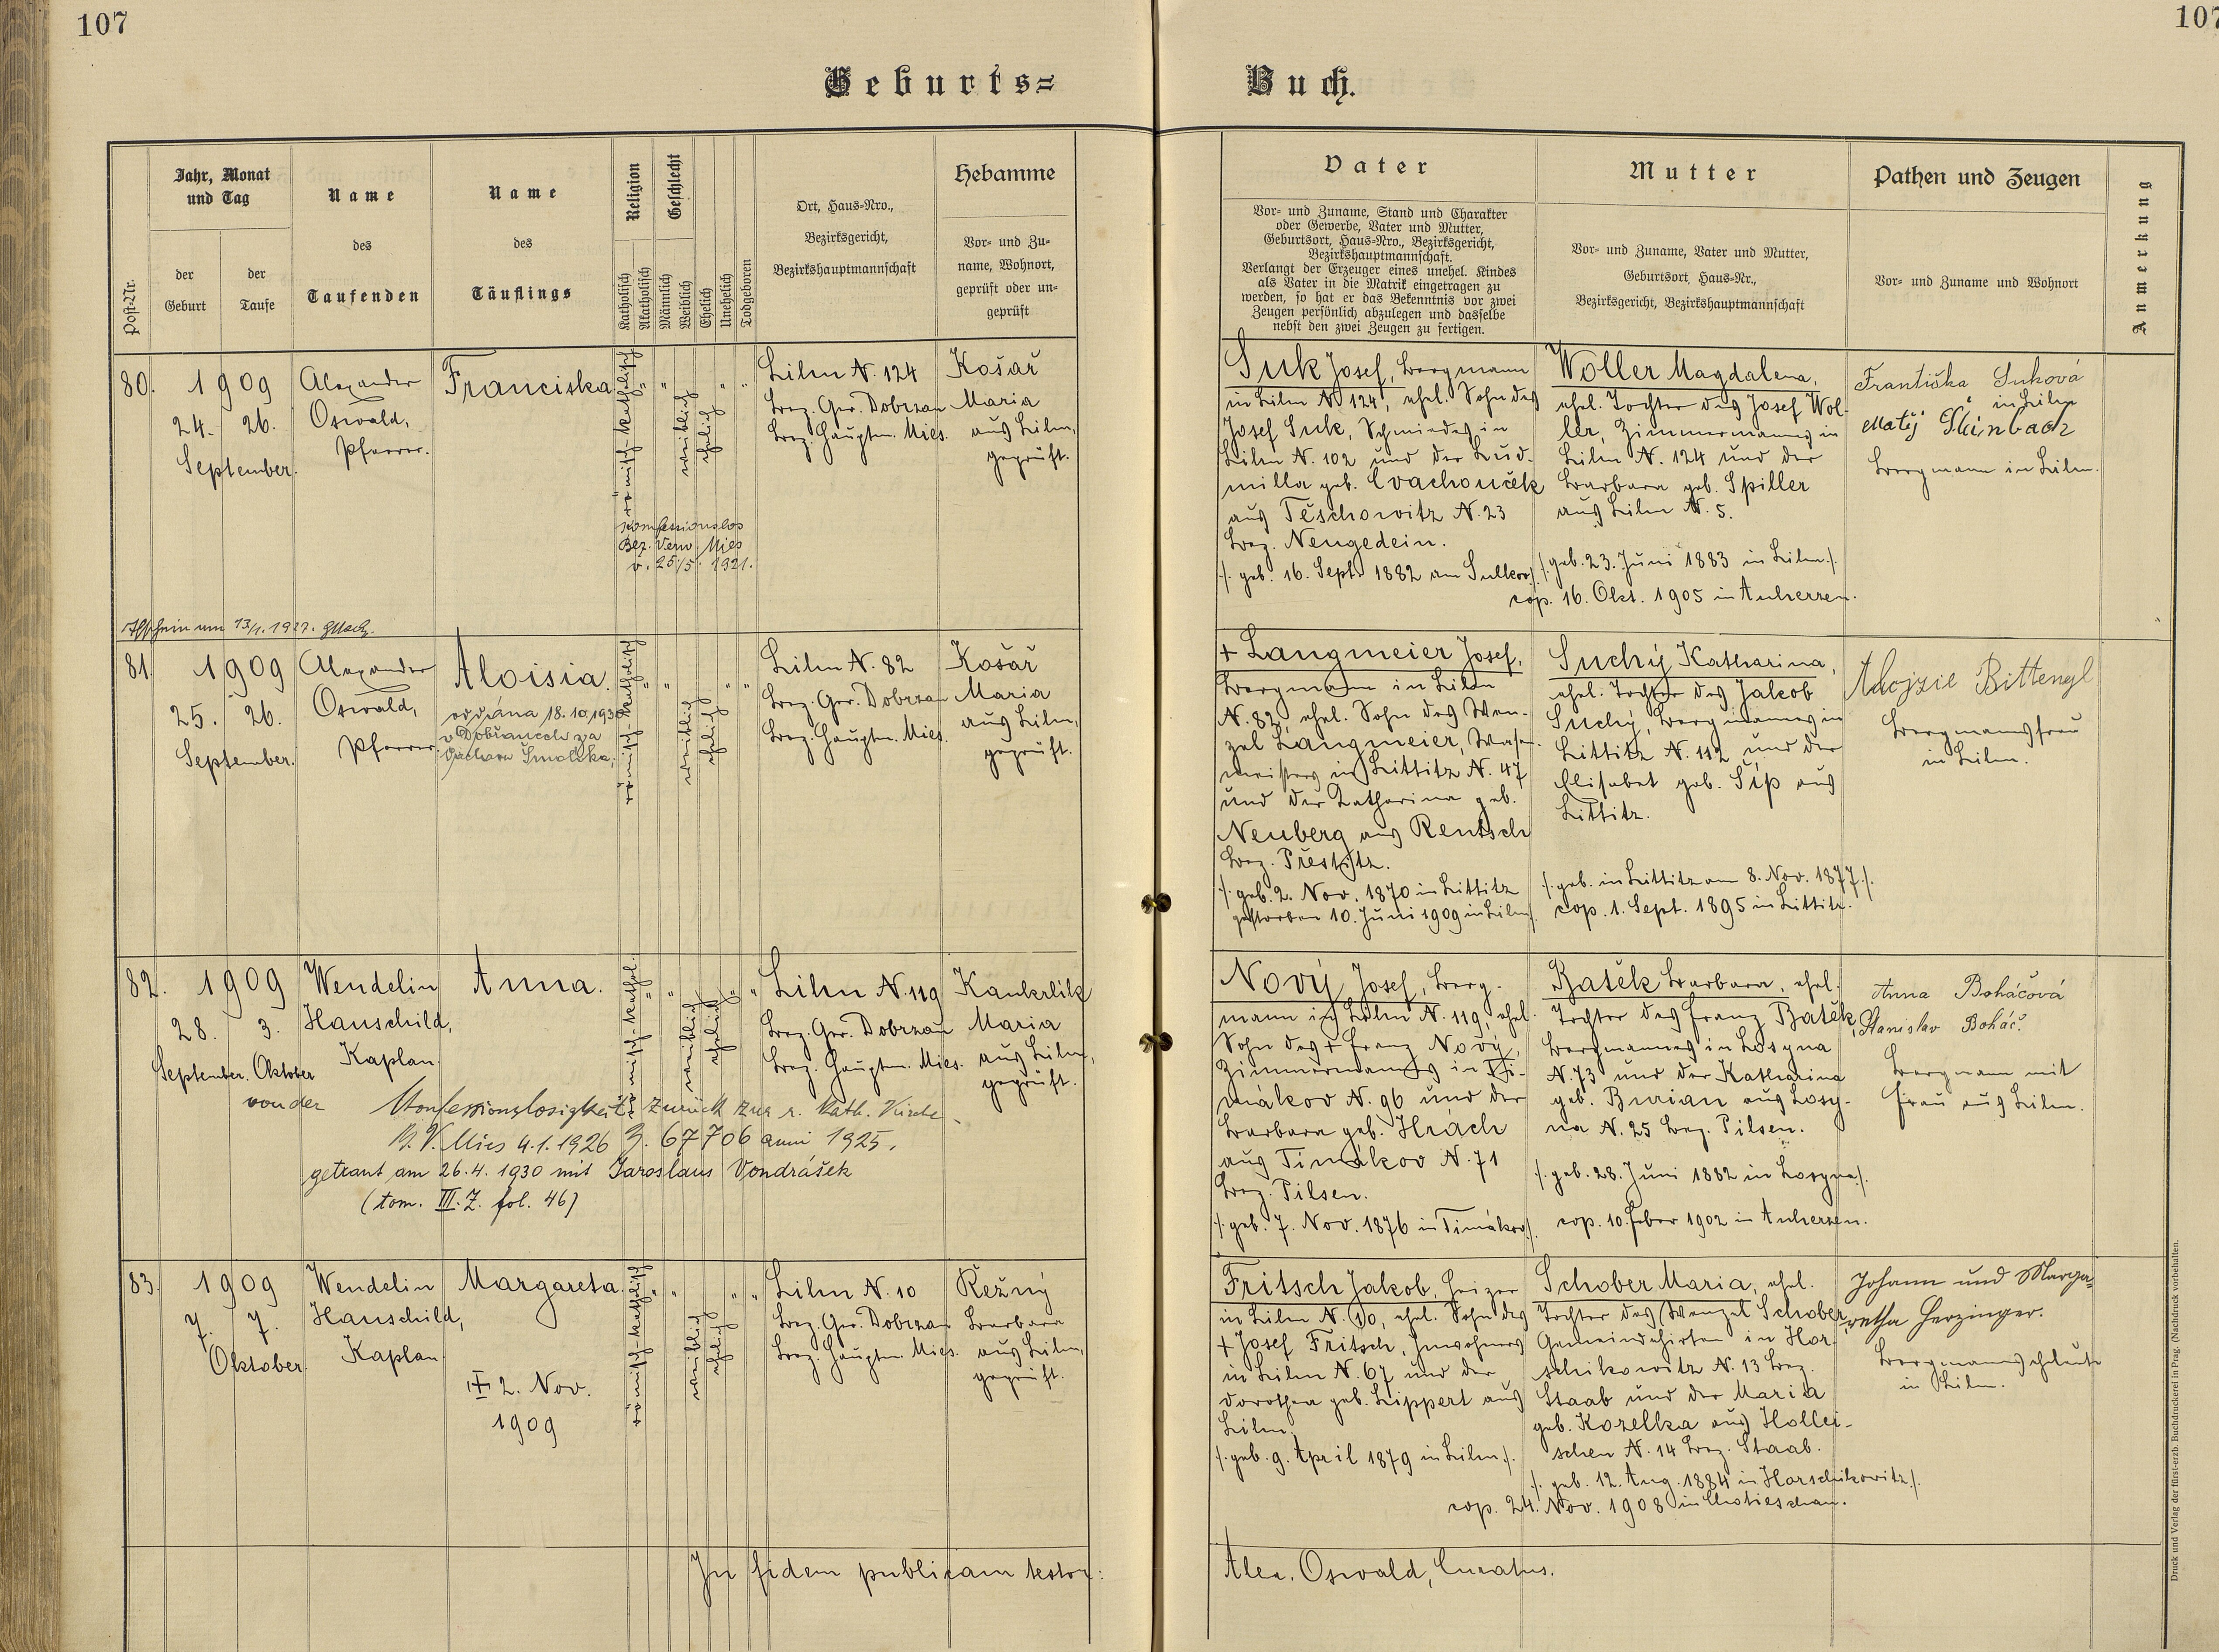 107
107
Geburts=
Buch.
Post-Nr.
Jahr, Monat
und Tag
der
Geburt
der
Taufe
Name
des
Taufenden
Name
des
Täuflings
Religion
Katholisch
Akatholisch
Geschlecht
Männlich
Weiblich
Ehelich
Unehelich
Todgeboren
Ort, Haus-Nro.,
Bezirksgericht,
Bezirkshauptmannschaft
Hebamme
Vor- und Zu-
name, Wohnort,
geprüft oder un-
geprüft
Vater
Vor- und Zuname, Stand und Charakter
oder Gewerbe, Vater und Mutter,
Geburtsort, Haus-Nro., Bezirksgericht,
Bezirkshauptmannschaft.
Verlangt der Erzeuger eines unehel. Kindes
als Vater in die Matrik eingetragen zu
werden, so hat er das Bekenntnis vor zwei
Zeugen persönlich abzulegen und dasselbe
nebst den zwei Zeugen zu fertigen.
Mutter
Vor- und Zuname, Vater und Mutter,
Geburtsort, Haus-Nr.,
Bezirksgericht, Bezirkshauptmannschaft
Pathen und Zeugen
Vor- und Zuname und Wohnort
Anmerkung
80.
1909
24. 26.
September.
Alexander
Oswald,
Pfarrer.
Franciska.
römisch-katholisch
" "
weiblich
ehelich
" "
konfessionslos
Bez. Verw. Mies
v. 25/5. 1921.
Liln N. 124
Bez. Ger. Dobrzan
Bez. Hauptm. Mies.
Košař
Maria
aus Liln,
geprüft.
Suk Josef, Bergmann
in Liln N. 124, ehel. Sohn des
Josef Suk, Schmiedes in
Liln N. 102 und der Lud-
milla geb. Cvachouček
aus Těschowitz N. 23
Bez. Neugedein.
/: geb. 16. Sept. 1882 am Sulkov :/
Woller Magdalena,
ehel. Tochter des Josef Wol-
ler, Zimmermannes in
Liln N. 124 und der
Barbara geb. Spiller
aus Liln N. 5.
/: geb. 23. Juni 1883 in Liln :/
cop. 16. Okt. 1905 in Auherzen.
Františka Suková
in Liln
Matěj Steinbach
Bergmann in Liln.
13/1. 1927.
81.
1909
25. 26.
September.
Alexander
Oswald,
Pfarrer.
Aloisia.
oddána 18.10.1930
v Dobřanech za
Smolíka,
römisch-katholisch
" "
weiblich
ehelich
" "
Liln N. 82
Bez. Ger. Dobrzan
Bez. Hauptm. Mies.
Košař
Maria
aus Liln,
geprüft.
+ Langmeier Josef,
Bergmann in Liln
N. 82, ehel. Sohn des Wen-
zel Langmeier, Wasen-
meisters in Littitz N. 47
und der Katharina geb.
Neuberg aus Rentsch
Bez. Přestitz.
/: geb. 2. Nov. 1870 in Littitz
gestorben 10. Juni 1909 in Liln :/
Suchý Katharina,
ehel. Tochter des Jakob
Suchý, Bergmannes in
Littitz N. 112 und der
Elisabet geb. Šíp aus
Littitz.
/: geb. in Littitz am 8. Nov. 1877 :/
cop. 1. Sept. 1895 in Littitz.
Aloizie Bittengl
Bergmannsfrau
in Liln.
82.
1909
28. 3.
September. Oktober
Wendelin
Hauschild,
Kaplan.
Anna.
römisch-kathol.
" "
weiblich
ehelich
" "
Liln N. 119
Bez. Ger. Dobrzan
Bez. Hauptm. Mies.
Kankrlik
Maria
aus Liln,
geprüft.
von der Konfessionslosigkeit zurück zur r. kath. Kirche
B. V. Mies 4.1.1926 Z. 67706 anni 1925.
getraut am 26.4.1930 mit Jaroslaus Vondrášek
(tom. III. Z. fol. 46)
Nový Josef, Berg-
mann in Liln N. 119, ehel.
Sohn des + Franz Nový,
Zimmermannes in Ti-
mákov N. 96 und der
Barbara geb. Hrách
aus Timákov N. 71
Bez. Pilsen.
/: geb. 7. Nov. 1876 in Timákov :/
Batěk Barbara, ehel.
Tochter des Franz Batěk,
Bergmannes in Losyna
N. 73 und der Katharina
geb. Burian aus Losy-
na N. 25 Bez. Pilsen.
/: geb. 28. Juni 1882 in Losyna :/
cop. 10. Feber 1902 in Auherzen.
Anna Boháčová
Stanislav Boháč.
Bergmann mit
Frau aus Liln.
83.
1909
7. 7.
Oktober.
Wendelin
Hauschild,
Kaplan.
Margareta.
+ 2. Nov.
1909
römisch-katholisch
" "
weiblich
ehelich
" "
Liln N. 10
Bez. Ger. Dobrzan
Bez. Hauptm. Mies.
Řežný
Barbara
aus Liln,
geprüft.
Fritsch Jakob, Heizer
in Liln N. 10, ehel. Sohn des
+ Josef Fritsch, Inwohners
in Liln N. 67 und der
Dorothea geb. Lippert aus
Liln.
/: geb. 9. April 1879 in Liln :/
Schober Maria, ehel.
Tochter des Wenzel Schober,
Gemeindehirten in Hor-
schikowitz N. 13 Bez.
Staab und der Maria
geb. Kozelka aus Hollei-
schen N. 14 Bez. Staab.
/: geb. 12. Aug. 1884 in Horschikowitz :/
cop. 24. Nov. 1908 in Chotieschau.
Johann und Marga=
retha Herzinger.
Bergmannseheleute
in Liln.
In fidem publicam testor:
Alex. Oswald, Curatus.
Druck und Verlag der fürst-erzb. Buchdruckerei in Prag. (Nachdruck vorbehalten.